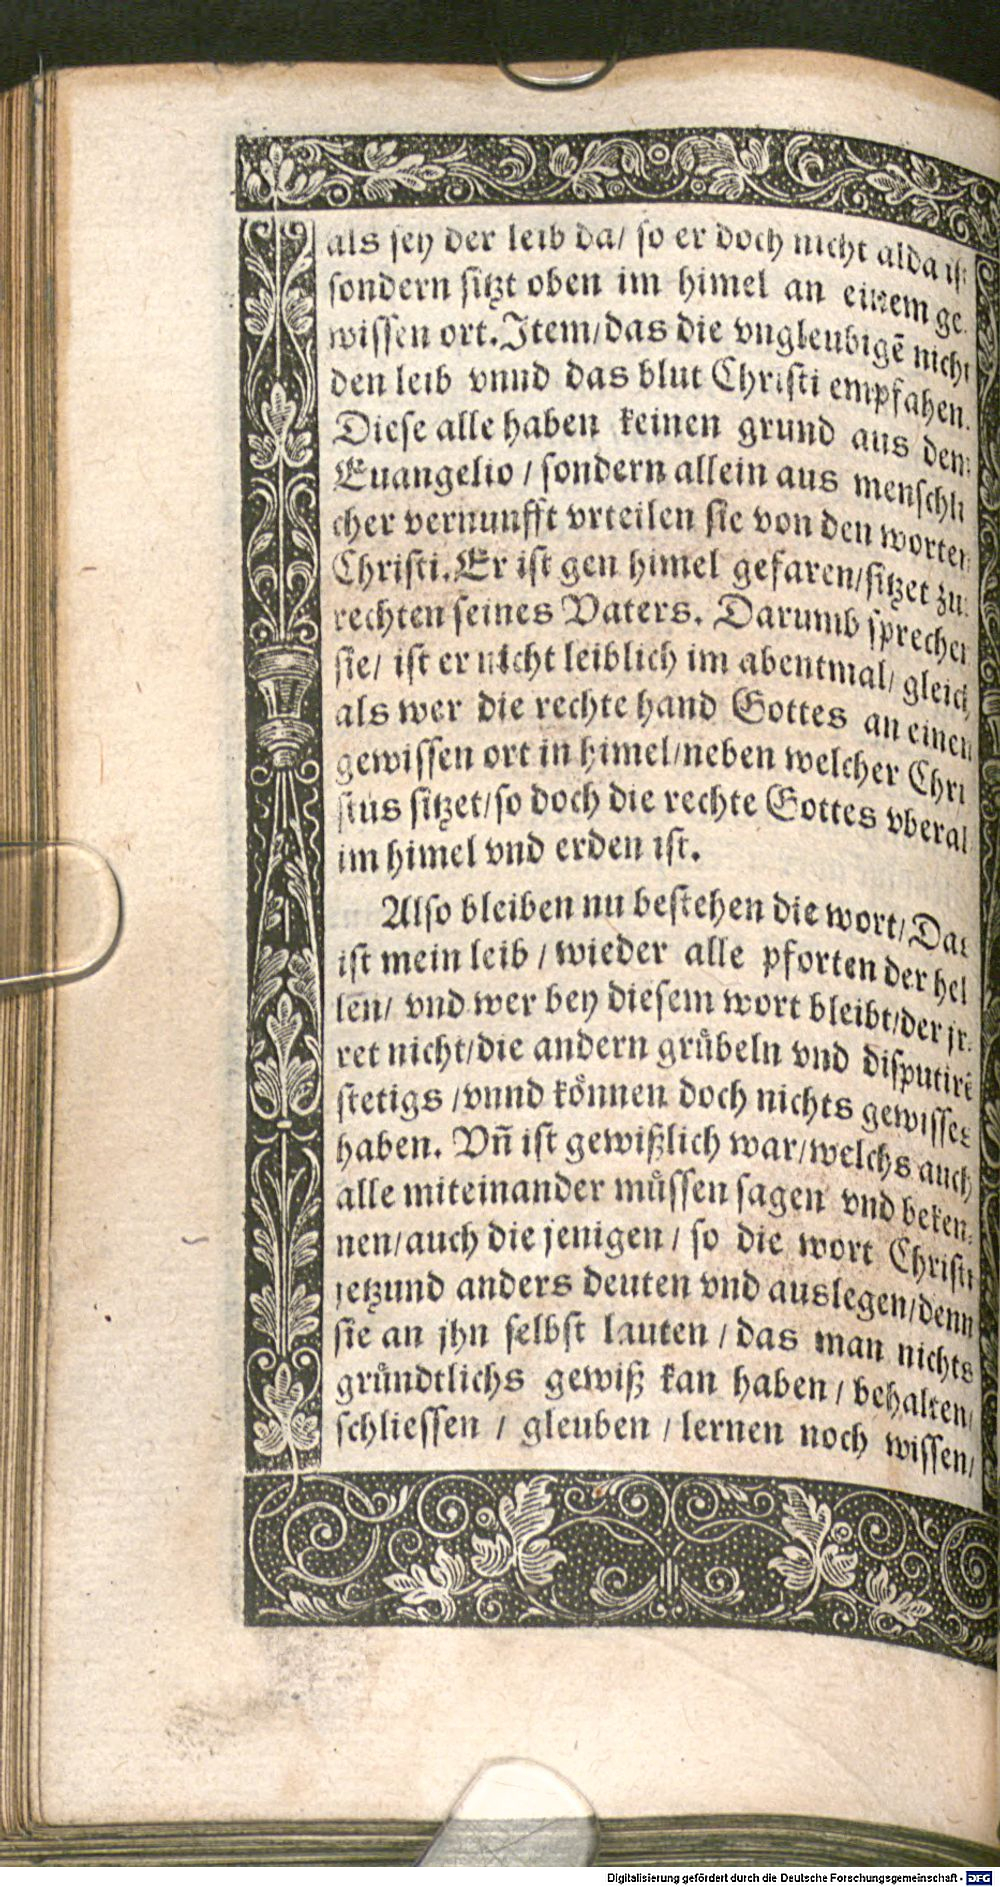 als sey der leib da/ so er doch nicht alda ist
sondern sitzt oben im himel an einem ge
wissen ort. Item/das die vngleubigẽ nicht
den leib vnnd das blut Christi empfahen.
Diese alle haben keinen grund aus dem
Euangelio / sondern allein aus menschli
cher vernunfft vrteilen sie von den worten
Christi. Er ist gen himel gefaren/sitzet zur
rechten seines Vaters. Darumb sprechen
sie/ ist er nicht leiblich im abentmal/ gleich
als wer die rechte hand Gottes an einen
gewissen ort in himel/neben welcher Chri
stus sitzet/so doch die rechte Gottes vberal
im himel vnd erden ist.
Also bleiben nu bestehen die wort/Das
ist mein leib / wieder alle pforten der hel
len/ vnd wer bey diesem wort bleibt/der jr-
ret nicht/die andern grübeln vnd disputirẽ
stetigs /vnnd können doch nichts gewisses
haben. Vñ ist gewißlich war/welchs auch
alle miteinander müssen sagen vnd beken-
nen/auch die jenigen / so die wort Christi
jetzund anders deuten vnd auslegen/denn
sie an jhn selbst lauten / das man nichts
gründtlichs gewiß kan haben / behalten/
schliessen / gleuben / lernen noch wissen/
Digitalisierung gefördert durch die Deutsche Forschungsgemeinschaft - DFG